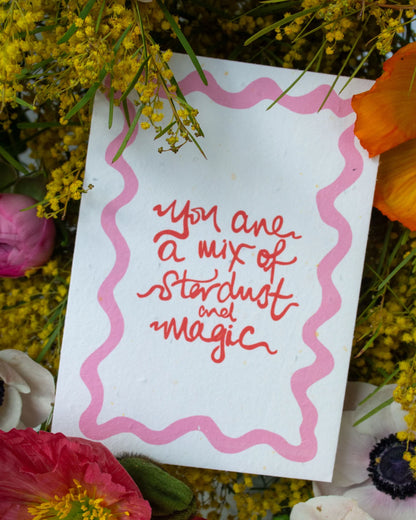 You are
a mix of
stardust
and
magic